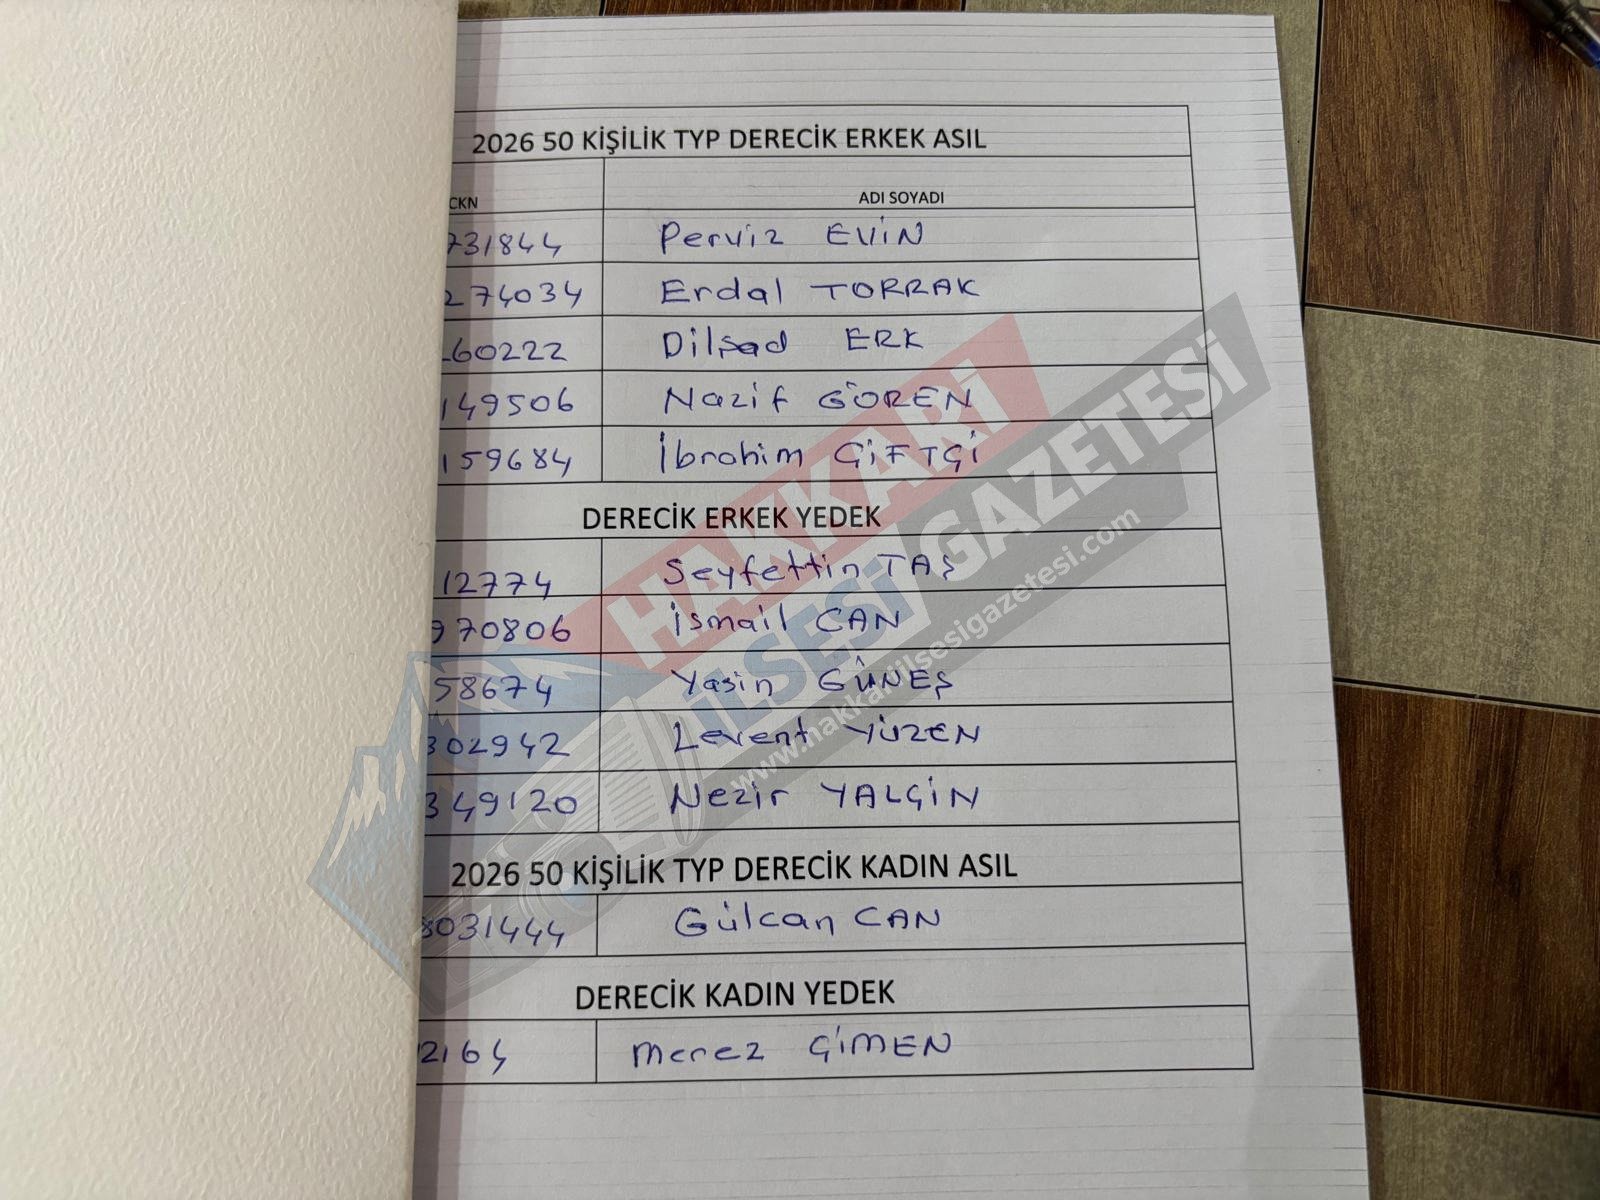 2026 50 KİŞİLİK TYP DERECİK ERKEK ASIL
CKN ADI SOYADI
731844 Perviz EVİN
274034 Erdal TORRAK
60222 Dilşad ERK
149506 Nazif GÖREN
159684 İbrahim ÇİFTÇİ
DERECİK ERKEK YEDEK
12774 Seyfettin TAŞ
970806 İsmail CAN
58674 Yasin GÜNEŞ
302942 Levent YÜZEN
349120 Nezir YALÇIN
2026 50 KİŞİLİK TYP DERECİK KADIN ASIL
8031444 Gülcan CAN
DERECİK KADIN YEDEK
2164 Merez ÇİMEN
HAKKARİ
İLSESİ GAZETESİ
www.hakkariilsesigazetesi.com